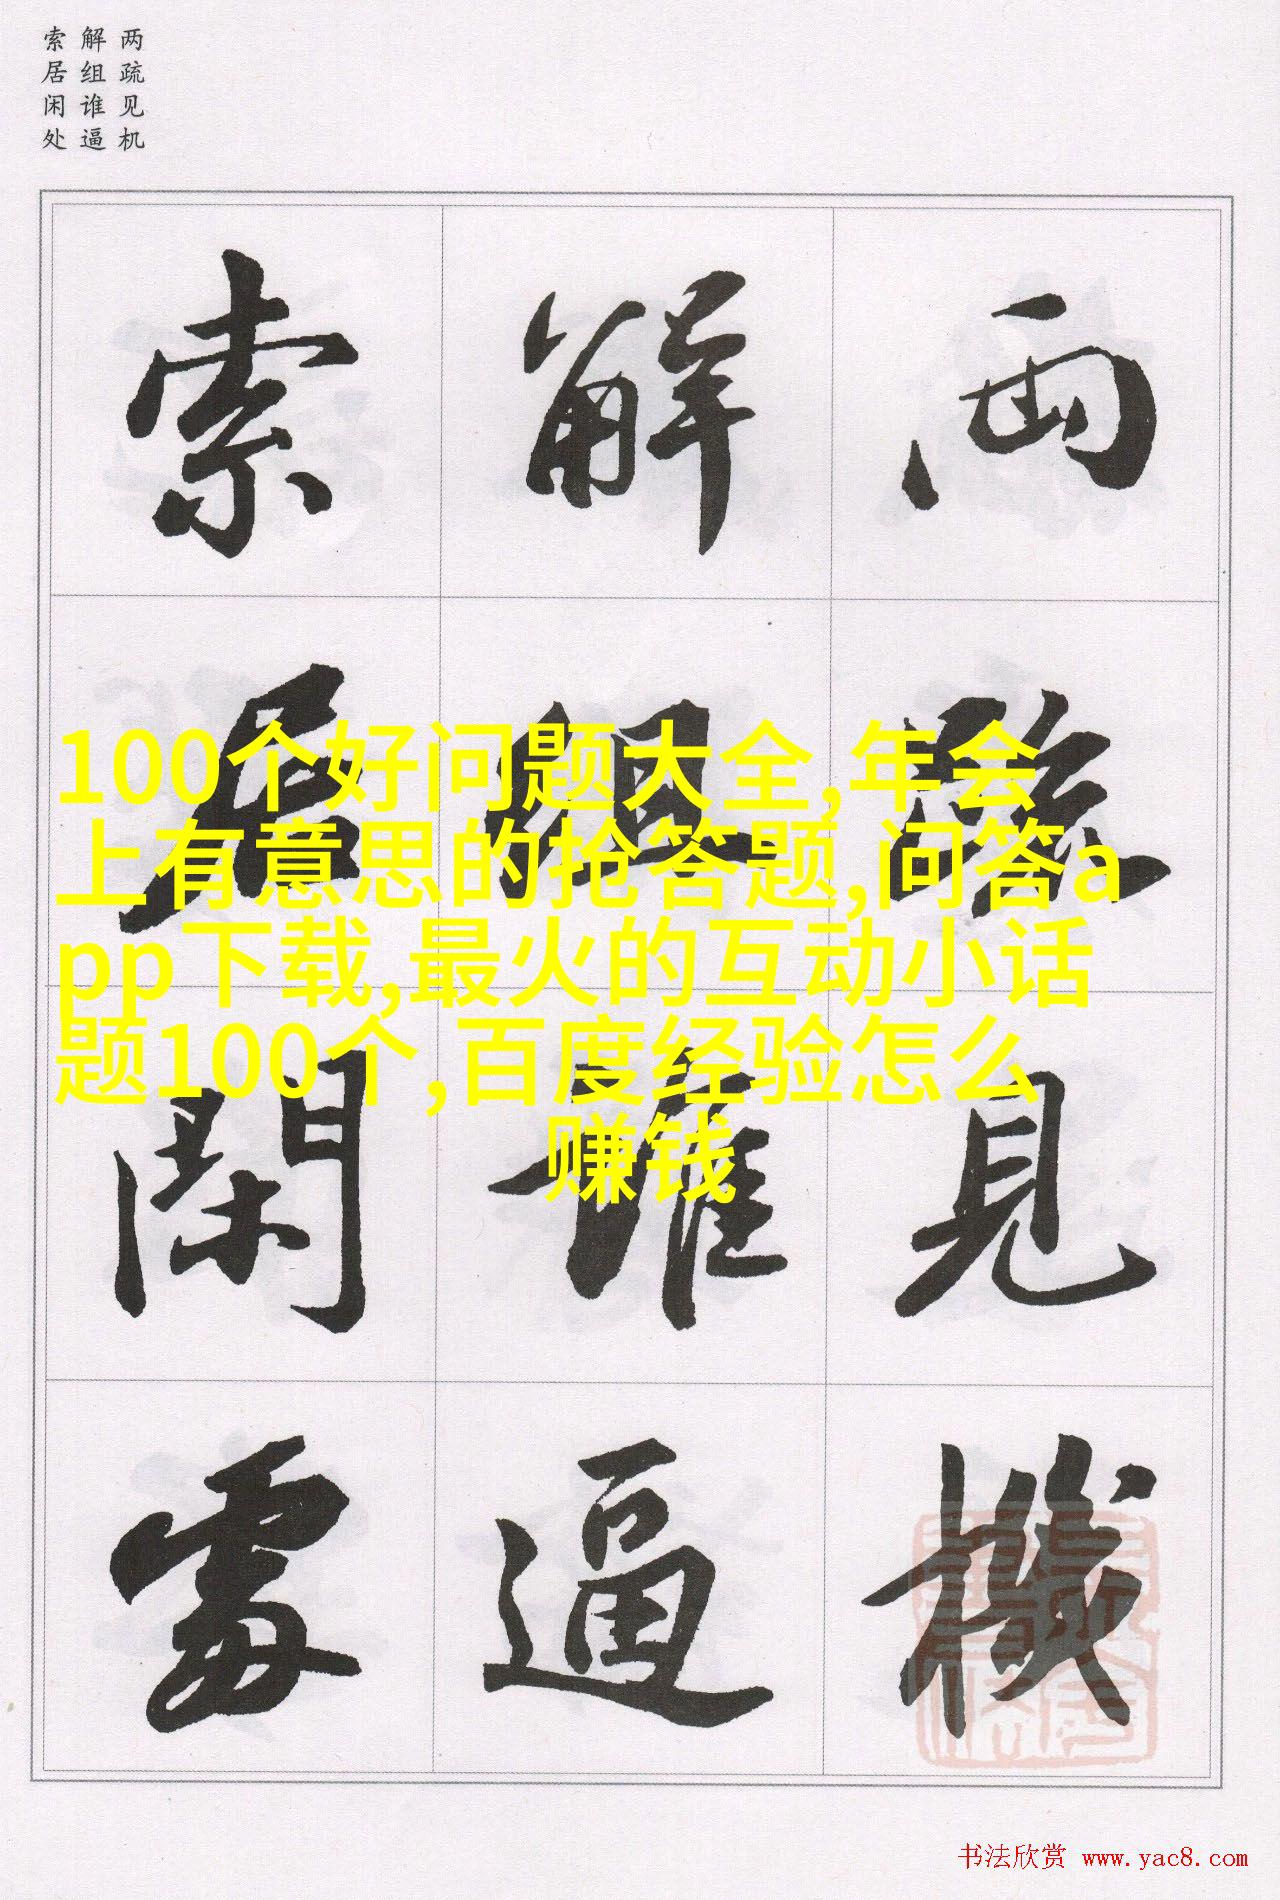 两疏见机
解组谁逼
索居闲处
兩疏見機
解組誰逼
索居閑處
100个好问题大全,年会
上有意思的抢答题,问答a
pp下载,最火的互动小话
题100个,百度经验怎么
赚钱
书法欣赏 www.yac8.com